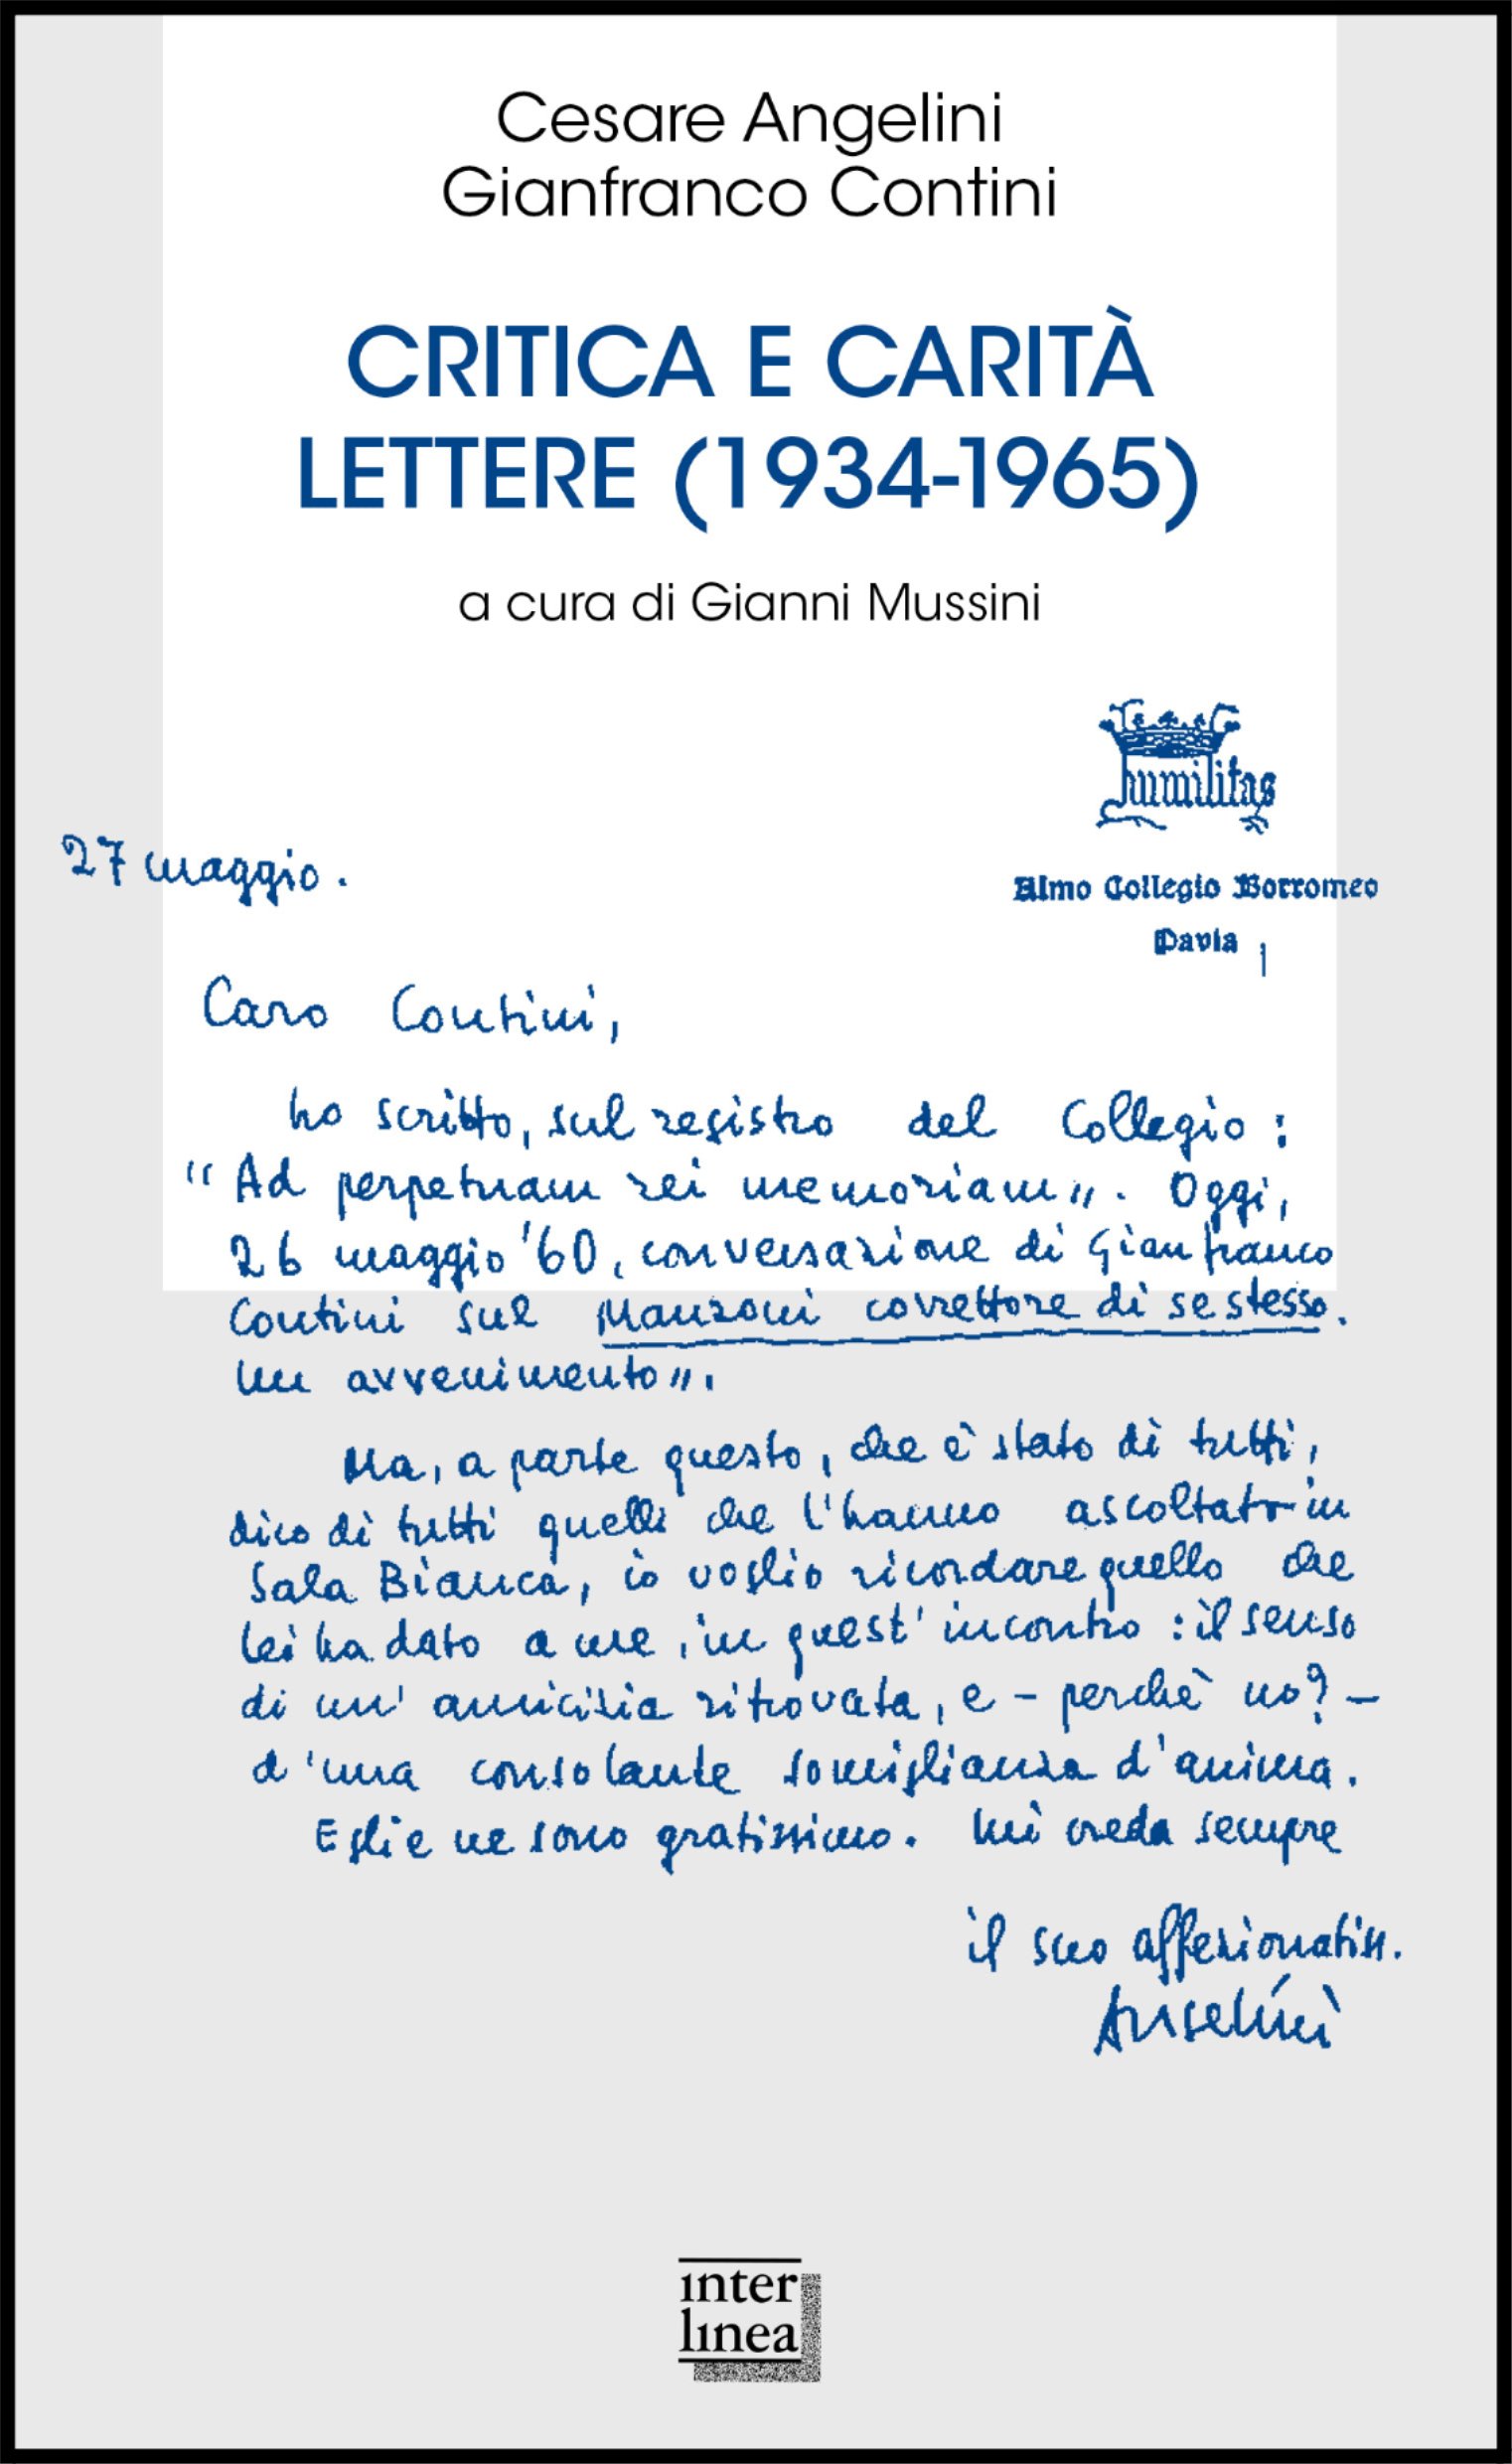 Cesare Angelini
Gianfranco Contini
CRITICA E CARITÀ
LETTERE (1934-1965)
a cura di Gianni Mussini
humilitas
Almo Collegio Borromeo
Pavia
27 maggio.
Caro Contini,
ho scritto, sul registro del Collegio:
"Ad perpetuam rei memoriam". Oggi,
26 maggio '60, conversazione di Gianfranco
Contini sul Manzoni correttore di se stesso.
Un avvenimento".
Ma, a parte questo, che è stato di tutti,
dico di tutti quelli che l'hanno ascoltato in
Sala Bianca, io voglio ricordare quello che
lei ha dato a me, in quest'incontro: il senso
di un'amicizia ritrovata, e - perchè no? -
d'una consolante somiglianza d'anima.
E gliene sono gratissimo. Mi creda sempre
il suo affezionatiss.
Angelini
inter
linea